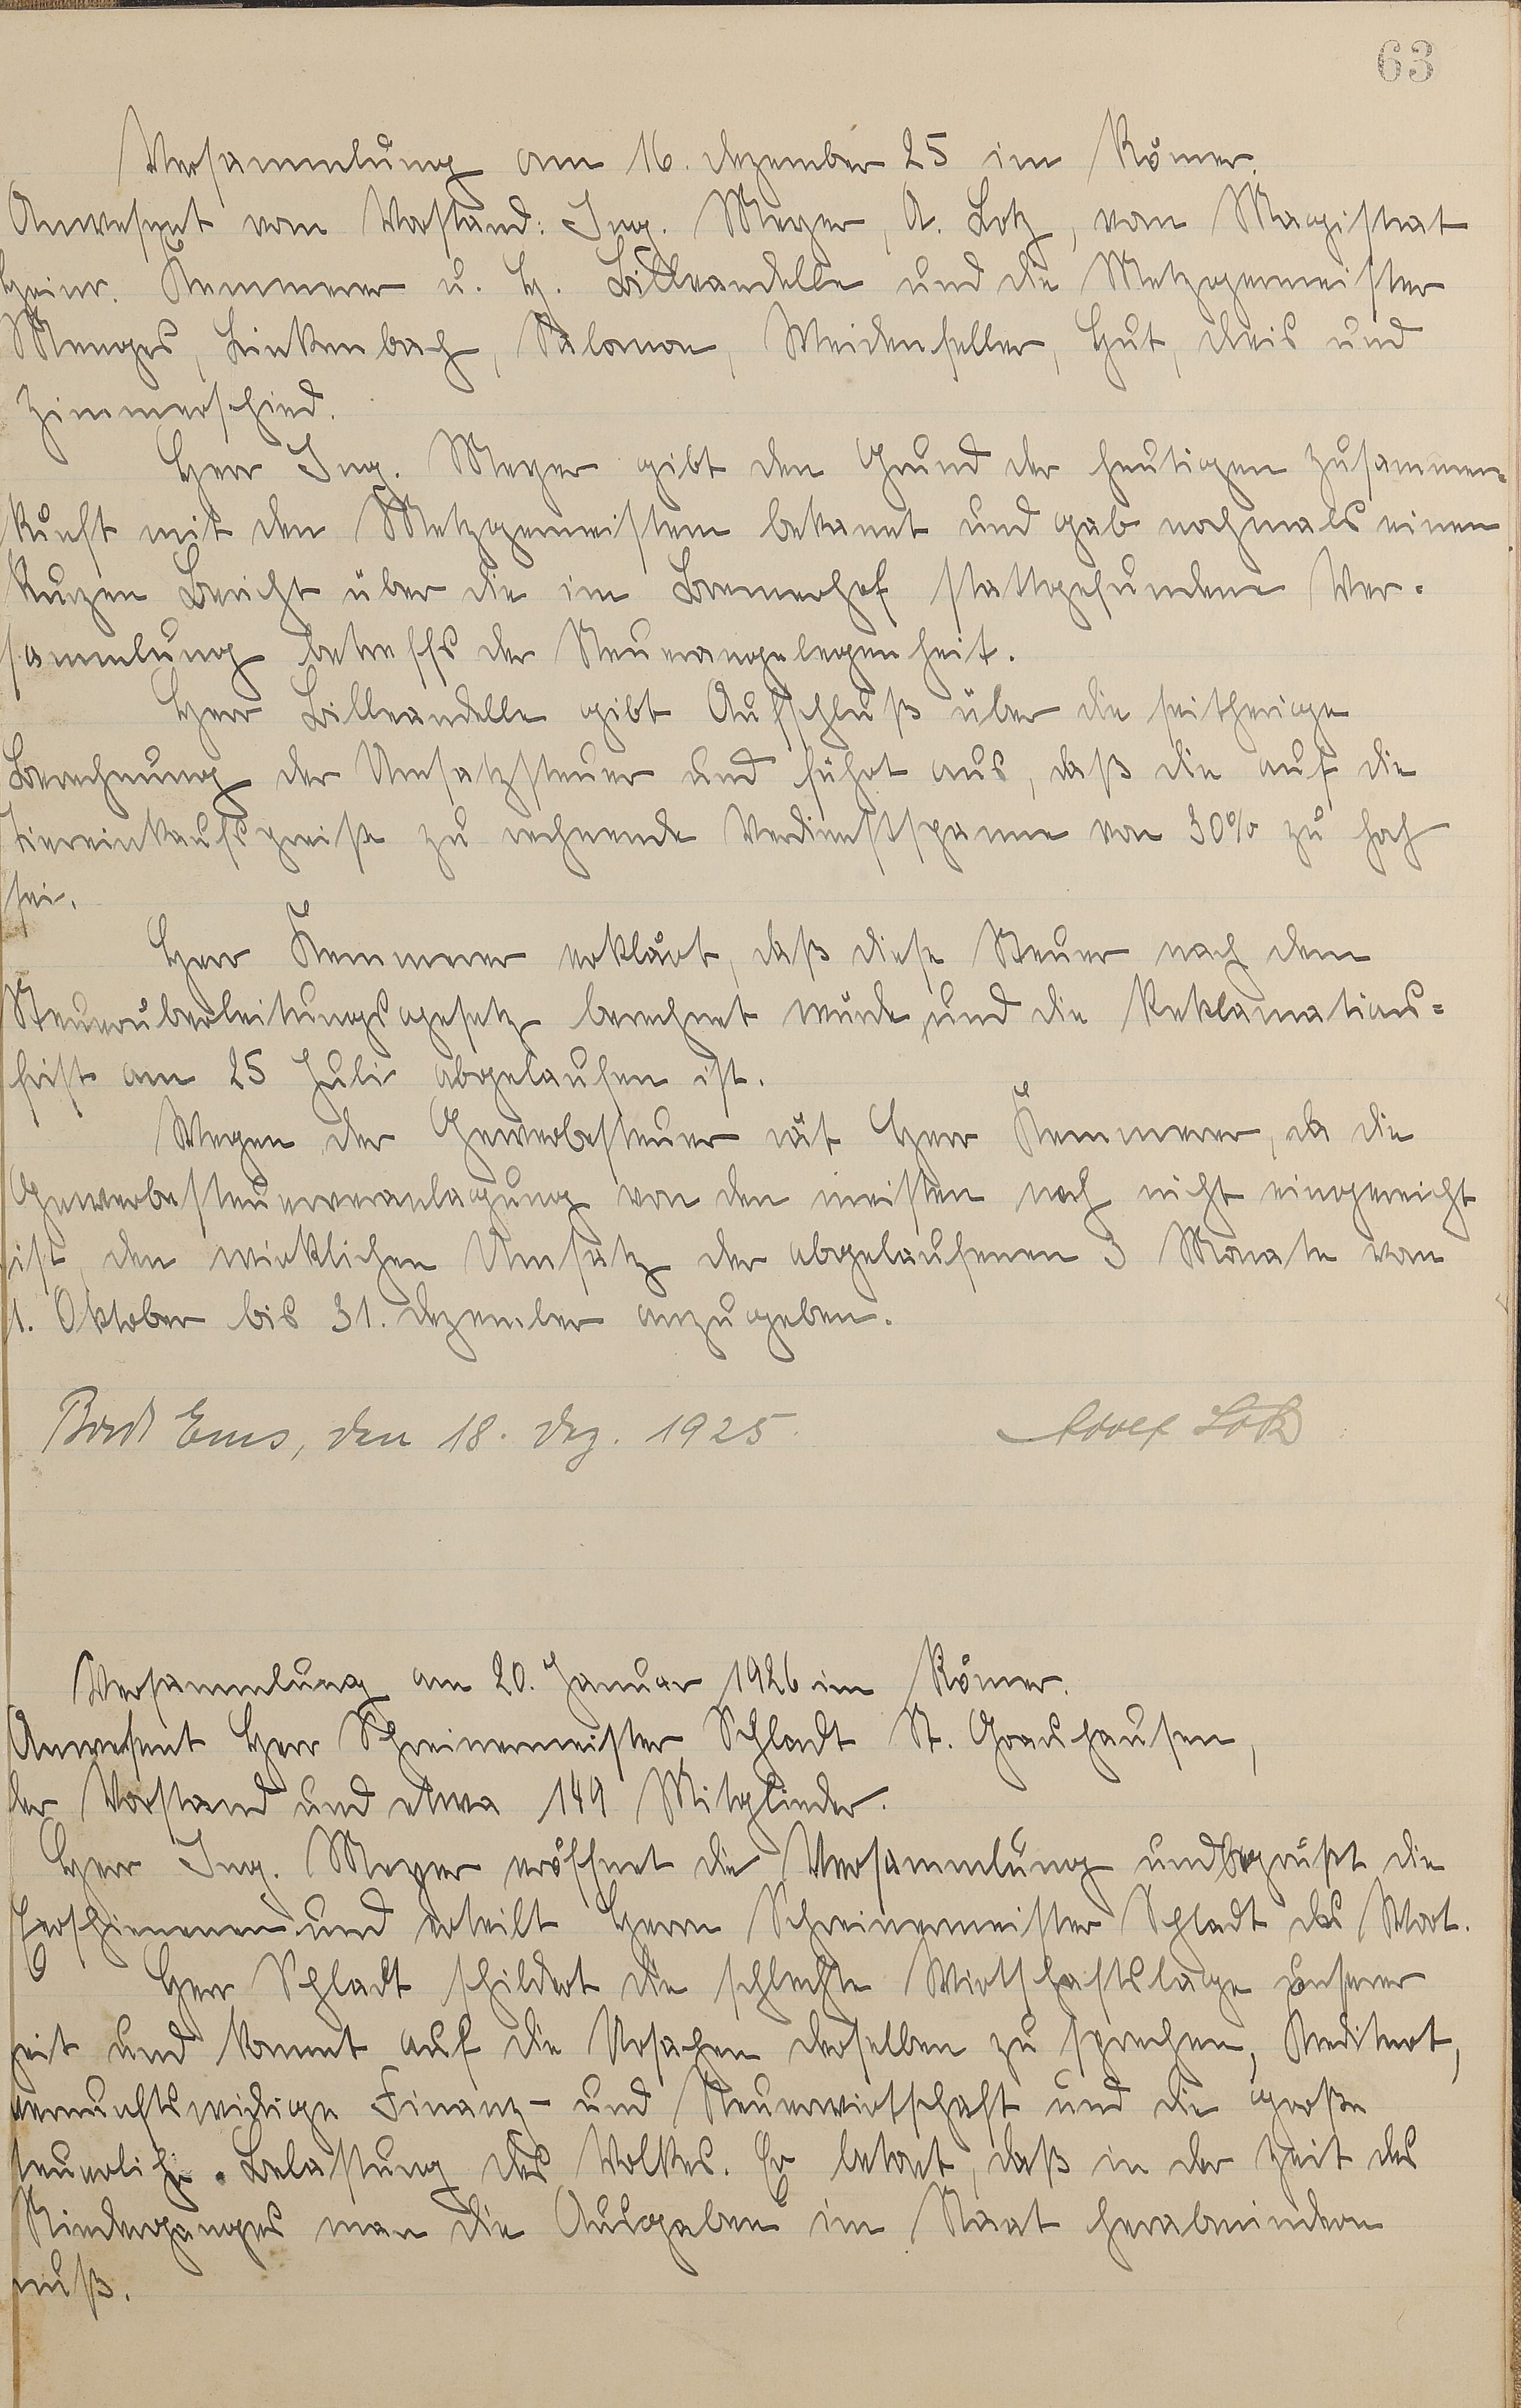 63
Versammlung am 16. Dezember 25 im Römer.
Anwesent vom Vorstand: Ing. Meyer, A. Lotz, vom Magistrat
Heinr. Kemmerer u. H. Billeaudelle und die Metzgermeister
Menges, Linkenbach, Salomon, Weidenfeller, Hut, Theis und
Zimmerschied.
Herr Ing. Meyer gibt den Grund der heutigen Zusammen-
kunft mit den Metzgermeistern bekannt und gab nochmals einen
kurzen Bericht über die im Bremerhof stattgefundene Ver-
sammlung betreffs der Steuerangelegenheit.
Herr Billeaudelle gibt Aufschluß über die seitherige
Berechnung der Umsatzsteuer und führt aus, daß die auf die
Tiereinkaufspreise zu rechnende Verdienstspanne von 30% zu hoch
sei.
Herr Kemmerer erklärt, daß diese Steuer nach dem
Steuerüberleitungsgesetz berechnet wurde, und die Reklamations=
frist am 25 Juli abgelaufen ist.
Wegen der Gewerbesteuer rät Herr Kemmerer, da die
Gewerbesteuerveranlagung von den meisten noch nicht eingereicht
ist, den wirklichen Umsatz der abgelaufenen 3 Monate vom
1. Oktober bis 31. Dezember anzugeben.
Bad Ems, den 18. Dez. 1925. Adolf Lotz
Versammlung am 20. Januar 1926 im Römer.
Anwesent Herr Schreinermeister Schladt St. Goarshausen,
der Vorstand und etwa 149 Mitglieder.
Herr Ing. Meyer eröffnet die Versammlung und begrüßt die
Erschienenen und erteilt Herrn Schreinermeister Schladt das Wort.
Herr Schladt schildert die schlechte Wirtschaftslage unserer
Zeit und kommt auf die Ursachen derselben zu sprechen, Kreditnot,
vernunftswidrige Finanz- und Steuerwirtschaft und die große
steuerliche Belastung des Volkes. Er betont, daß in der Zeit des
Niederganges man die Ausgaben im Staat herabmindern
muß.